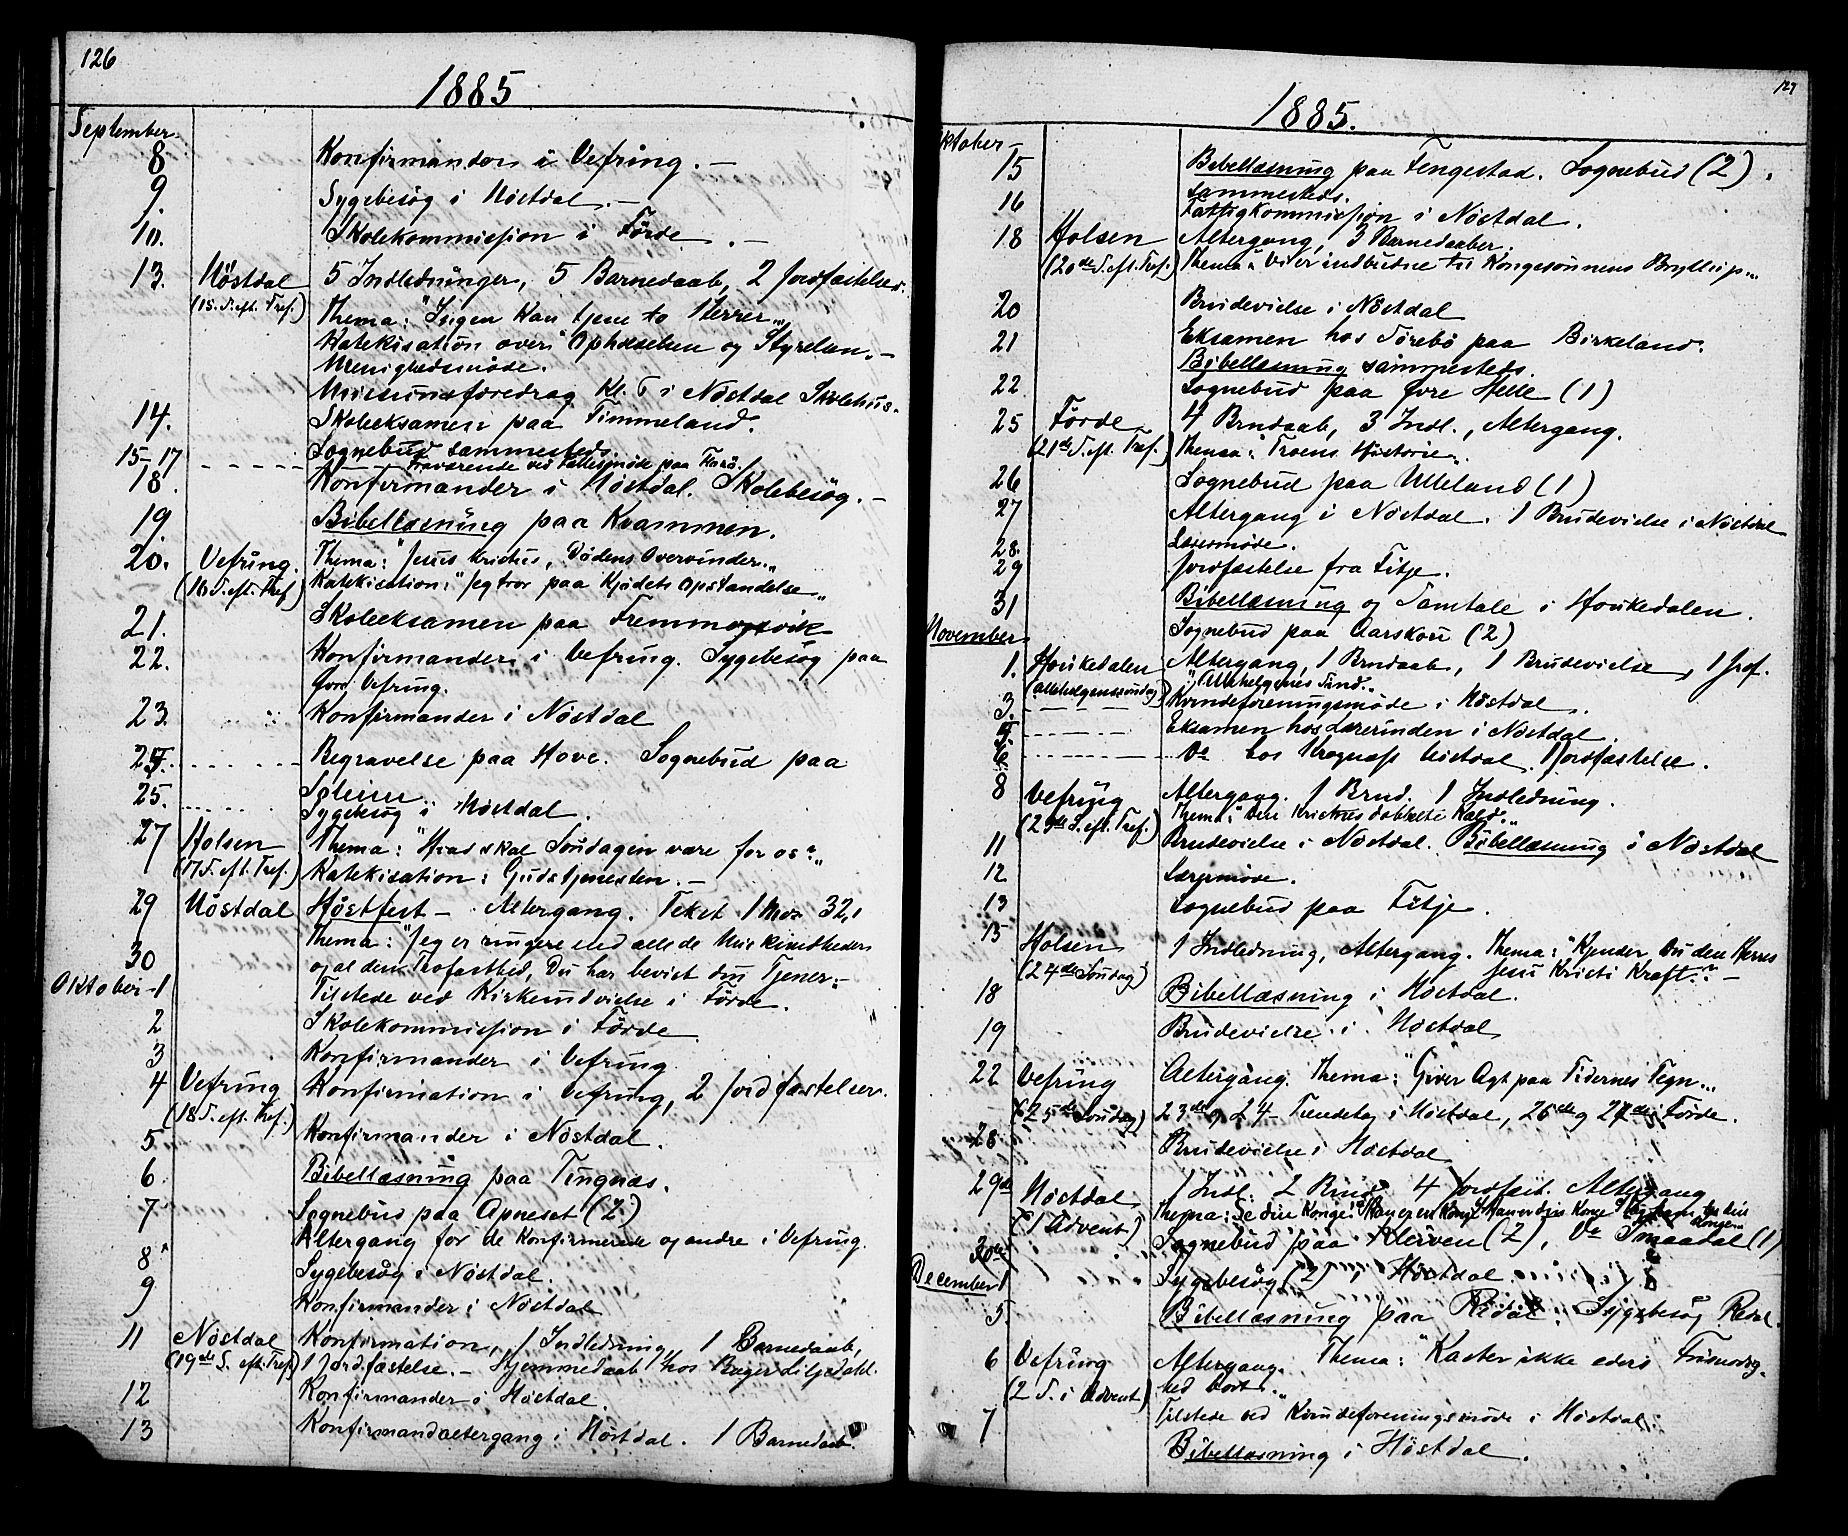 126
1885
September
8 Konfirmander i Vefring. –
9. Sygebesøg i Nöstdal. –
10. Skolekommission i Förde. –
13. Nöstdal 5 Indledninger, 5 Barnedaab, 2 Jordfæstelser.
(15. S. eft. Tref.) Thema: "Ingen kan tjene to Herrer"
Katekisation over: Opholdelsen og Styrelsen. –
Menighedsmøde.
Missionsforedrag Kl. 5 i Nöstdal Skolehus.
14. Skoleeksamen paa Timmeland.
Sognebud sammesteds.
15–17 Fraværende ved Fællesmøde paa Florö.
18. Konfirmander i Nöstdal. Skolebesøg. –
19. Bibellæsning paa Kvammen.
20. Vefring. Thema: "Jesus Kristus, Dødens Overvinder"
(16 S. eft. Tref.) Katekisation: "Jeg tror paa Kjødets Opstandelse"
21. Skoleeksamen paa
22. Konfirmander i Vefring. Sygebesøg paa
Vefring.
23. Konfirmander i Nöstdal
25. Begravelse paa Hove. Sognebud paa
25. Sygebesøg i Nöstdal.
27 Holsen Thema: "Hvad skal Søndagen være for os?"
(17 S. eft. Tref.) Katekisation: Gudstjenesten. –
29 Nöstdal Höstfest – Altergang. Tekst 1 Mos 32,
Thema: "Jeg er ringere end alle de Miskundheder
30 og al den Trofasthed, Du har bevist din Tjener"
Oktober 1 Tilstede ved Kirkeindvielse i Förde.
2 Skolekommission i Förde
3 Konfirmander i Vefring
4 Vefring Konfirmation i Vefring, 2 Jordfæstelser.
(18 S. eft. Tref.)
5 Konfirmander i Nöstdal.
6 Bibellæsning paa Tingnæs.
7 Sognebud paa Apneset (2)
Altergang for de Konfirmerede og andre i Vefring.
8 Sygebesøg i Nöstdal.
9 Konfirmander i Nöstdal
11 Nöstdal Konfirmation, 1 Indledning, 1 Barnedaab,
(19de S. eft. Tref.) 1 Jordfæstelse. – Hjemmedaab hos Bager Liljedahl.
12 Konfirmander i Nöstdal.
13 Konfirmandaltergang i Nöstdal. 1 Barnedaab.
127
1885.
ktober
15 Bibellæsning paa Fengestad. Sognebud (2).
sammesteds.
16 Fattigkommission i Nöstdal.
18 Holsen Altergang, 3 Barnedaaber.
(20de S. eft. Tref.) Thema: "Vi er indbudne til Kongesønnens Bryllup"
20 Brudevielse i Nöstdal
21 Eksamen hos Sörebö paa Birkeland.
Bibellæsning sammesteds.
22 Sognebud paa Övre Helle (1)
25 Förde 4 Brndaab, 3 Indl., Altergang.
(21de S. eft. Tref.) Thema: "Troens Historie"
26 Sognebud paa Ulleland (1)
27 Altergang i Nöstdal. 1 Brudevielse i Nöstdal
28. Læsemøde.
29 Jordfæstelse fra Fitje.
31 Bibellæsning og Samtale i Houkedalen.
Sognebud paa Aarskou (2)
November
1. Houkedalen Altergang, 1 Brndaab, 1 Brudevielse, 1 Jrdf.
(Allehelgenssøndag)
3. Kvindeforeningsmøde i Nöstdal.
5. Eksamen hos Lærerinden i Nöstdal.
6 Do hos Kragnæs Nöstdal. 1 Jordfæstelse.
8 Vefring Altergang. 1 Brnd. 1 Indledning.
(23de S. eft. Tref.) Thema: "Den Kristnes dobbelte Kald"
11 Brudevielse i Nöstdal. Bibellæsning i Nöstdal
12 Læsemøde.
13 Sognebud paa Fitje.
15 Holsen 1 Indledning, Altergang. Thema: "Kjender Du den Herres
(24de Søndag) Jesu Kristi Kraft?" –
18 Bibellæsning i Nöstdal.
19 Brudevielse i Nöstdal
22 Vefring Altergang. Thema: "Giver Agt paa Tidernes Tegn"
(25de Søndag) 23de og 24 – i Nöstdal, 26de og 27de i Förde.
28 Brudevielse i Nöstdal
29de Nöstdal 1 Indl. 2 Brnd. 4 Jordfæst. Altergang
(1 Advent) Thema: Se din Konge!
30te Sognebud paa Klörven (2), Do (1)
December 1 Sygebesøg (2) i Nöstdal.
5. Bibellæsning paa Redal. Sygebesøg Redal.
6 Vefring Altergang. Thema: "Kaster ikke eders Frimodig-
(2 S. i Advent) hed bort"
7 Tilstede ved Kvindeforeningsmøde i Nöstdal.
Bibellæsning i Nöstdal.